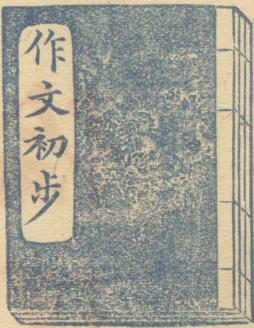 作文初步